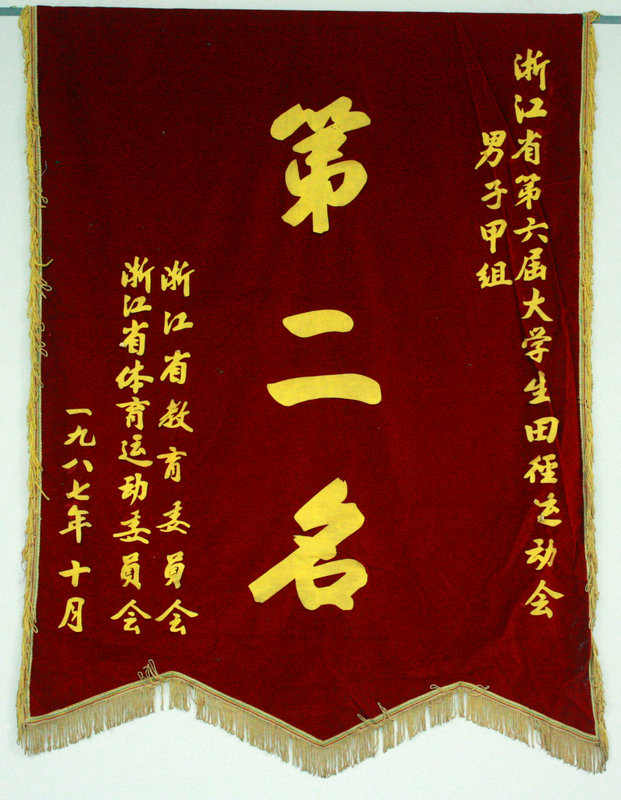 浙江省第六届大学生田径运动会
男子甲组
第二名
浙江省教育委员会
浙江省体育运动委员会
一九八七年十月